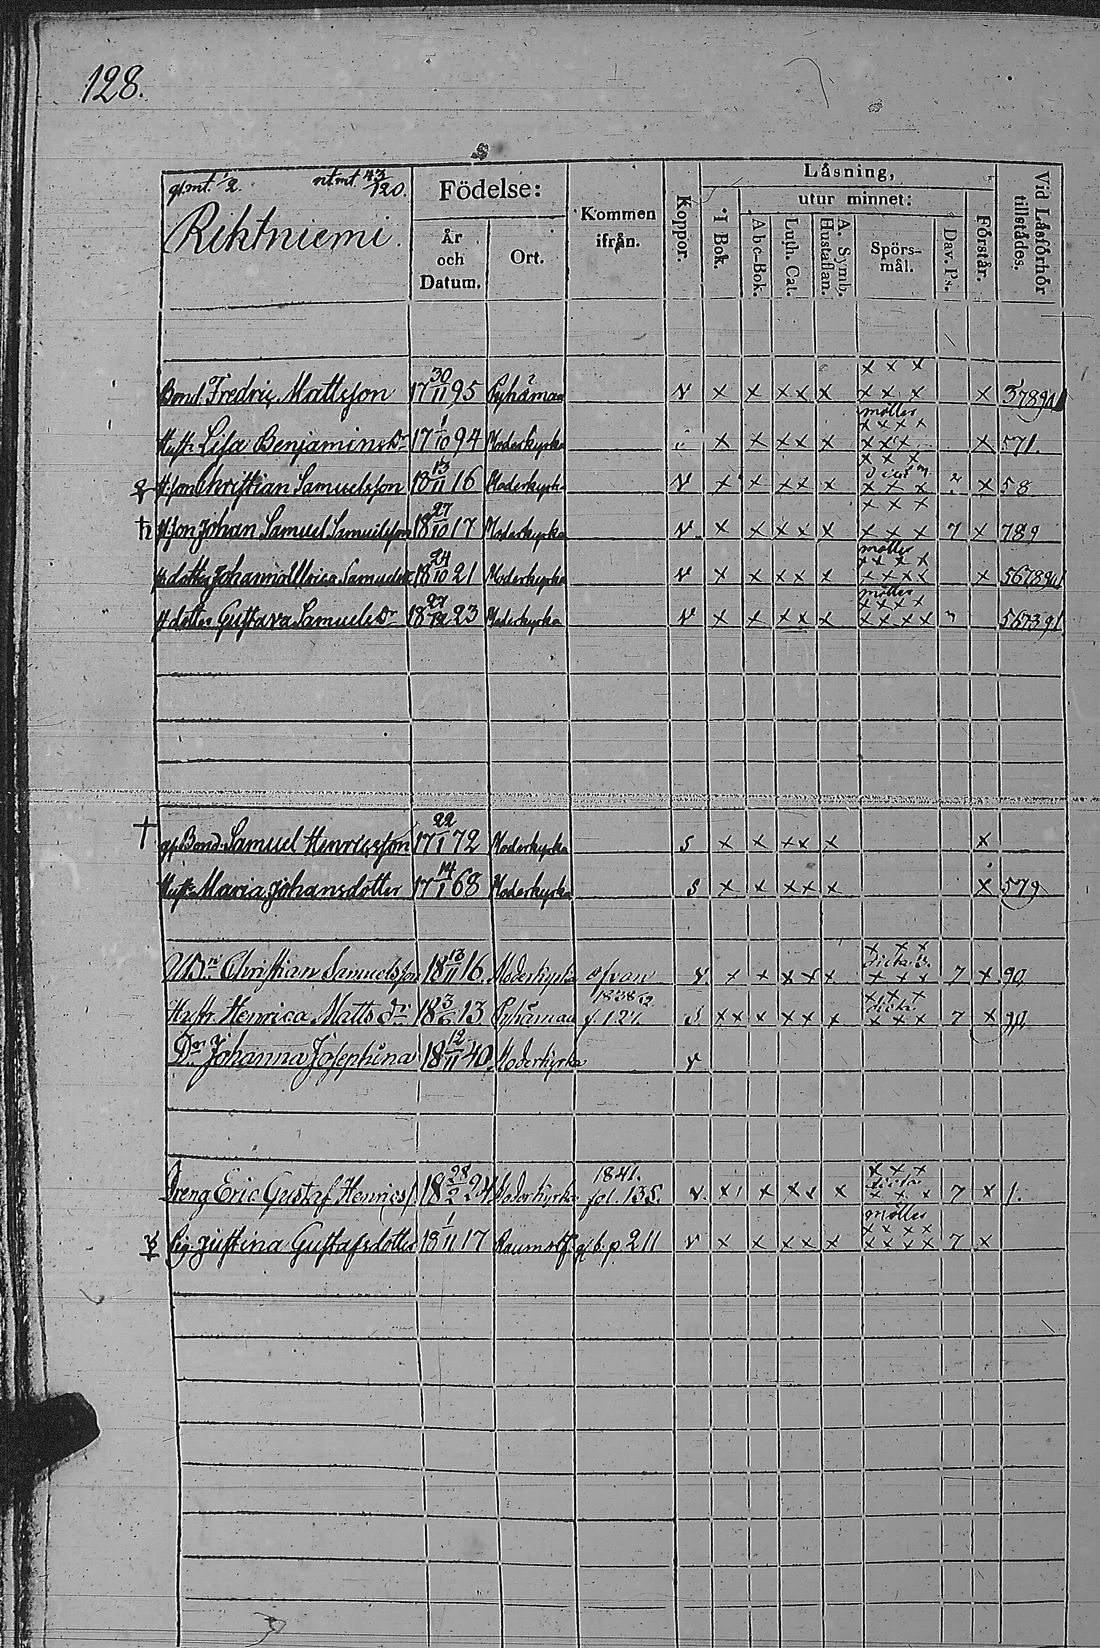 128.
gl.mt. 1/2. nt.mt. 43/120.
Riktniemi.
Födelse:
År och Datum.
Ort.
Kommen ifrån.
Koppor.
Läsning,
I Bok.
utur minnet:
Abc-Bok.
Luth. Cat.
A. Symb. Hustaflan.
Spörs-mål.
Dav. Ps.
Förstår.
Vid Läsförhör tillstådes.
x x x
Bond. Fredric Mattsson 17 30/11 95 Pyhämaa v x x x x x x x x x x
möller
x x x x
Hust. Lisa Benjamins Dr 17 1/10 94 Moderkyrka x x x x x x x x x x 571.
x x x
H. son Christian Samuelsson 18 13/11 16 Moderkyrk. v x x x x x x x x x 58
x x x
H. son Johan Samuel Samuelsson 18 27/10 17 Moderkyrka v x x x x x x x x x 7 x 789
möller
x x x x
H. dotter Johanna Ulrica Samuelsdr 18 24/10 21 Moderkyrka v x x x x x x x x x x
möller
x x x x
H. dotter Gustava Samuels Dr 18 27/12 23 Moderkyrka v x x x x x x x x x
† gl. Bond. Samuel Henricsson 17 22/1 72 Moderkyrka s x x x x x x
Hust. Maria Johansdotter 17 14/1 68 Moderkyrka s x x x x x x 579
x x x
Christian Samuelsson 18 13/11 16 Moderkyrka ofvan v. x x x x x x x x 7 x 90
1838
x x x
Hustr. Henrica Matts dr 18 13 Pyhämaa f. 127. s x x x x x x x x x 7 x
Dr Johanna Josephina 18 12/11 40. Moderkyrka v
1841.
x x x
Dreng Eric Gustaf Henricss. 18 28/2 24 Moderkyrka fol. 135. v. x x x x x x x x 7 x 1.
möller
x x x x
Pig. Justina Gustafsdotter 18 1/11 17 Raumo gl. b. p. 211 v x x x x x x x x x 7 x